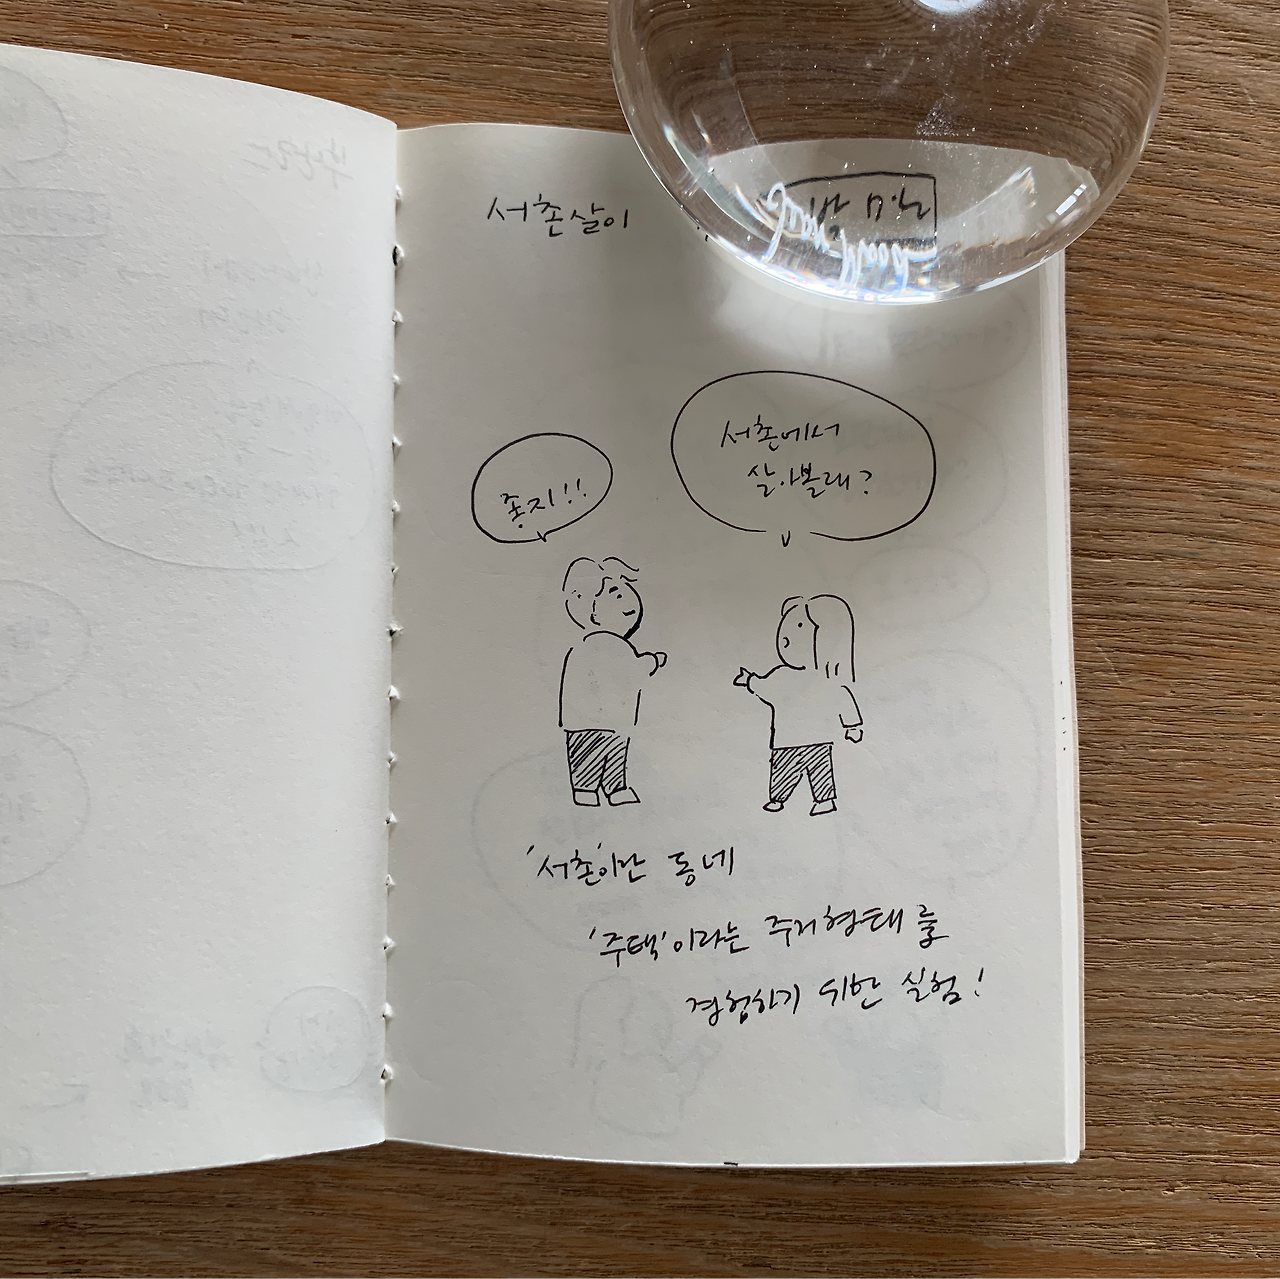 서촌살이
좋지!!
서촌에서
살아볼래?
'서촌'이란 동네
'주택'이라는 주거형태를
경험하기 위한 실험!